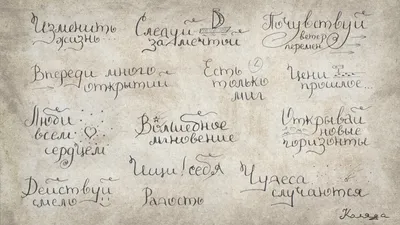 Изменить
жизнь
Следуй
за мечтой
Почувствуй
ветер
перемен
Впереди много
открытий
Есть
только
миг
Цени
прошлое...
Люби
всем
сердцем
Волшебное
мгновение
Открывай
новые
горизонты
Ищи себя
Действуй
смело
Радость
Чудеса
случаются
Каляда